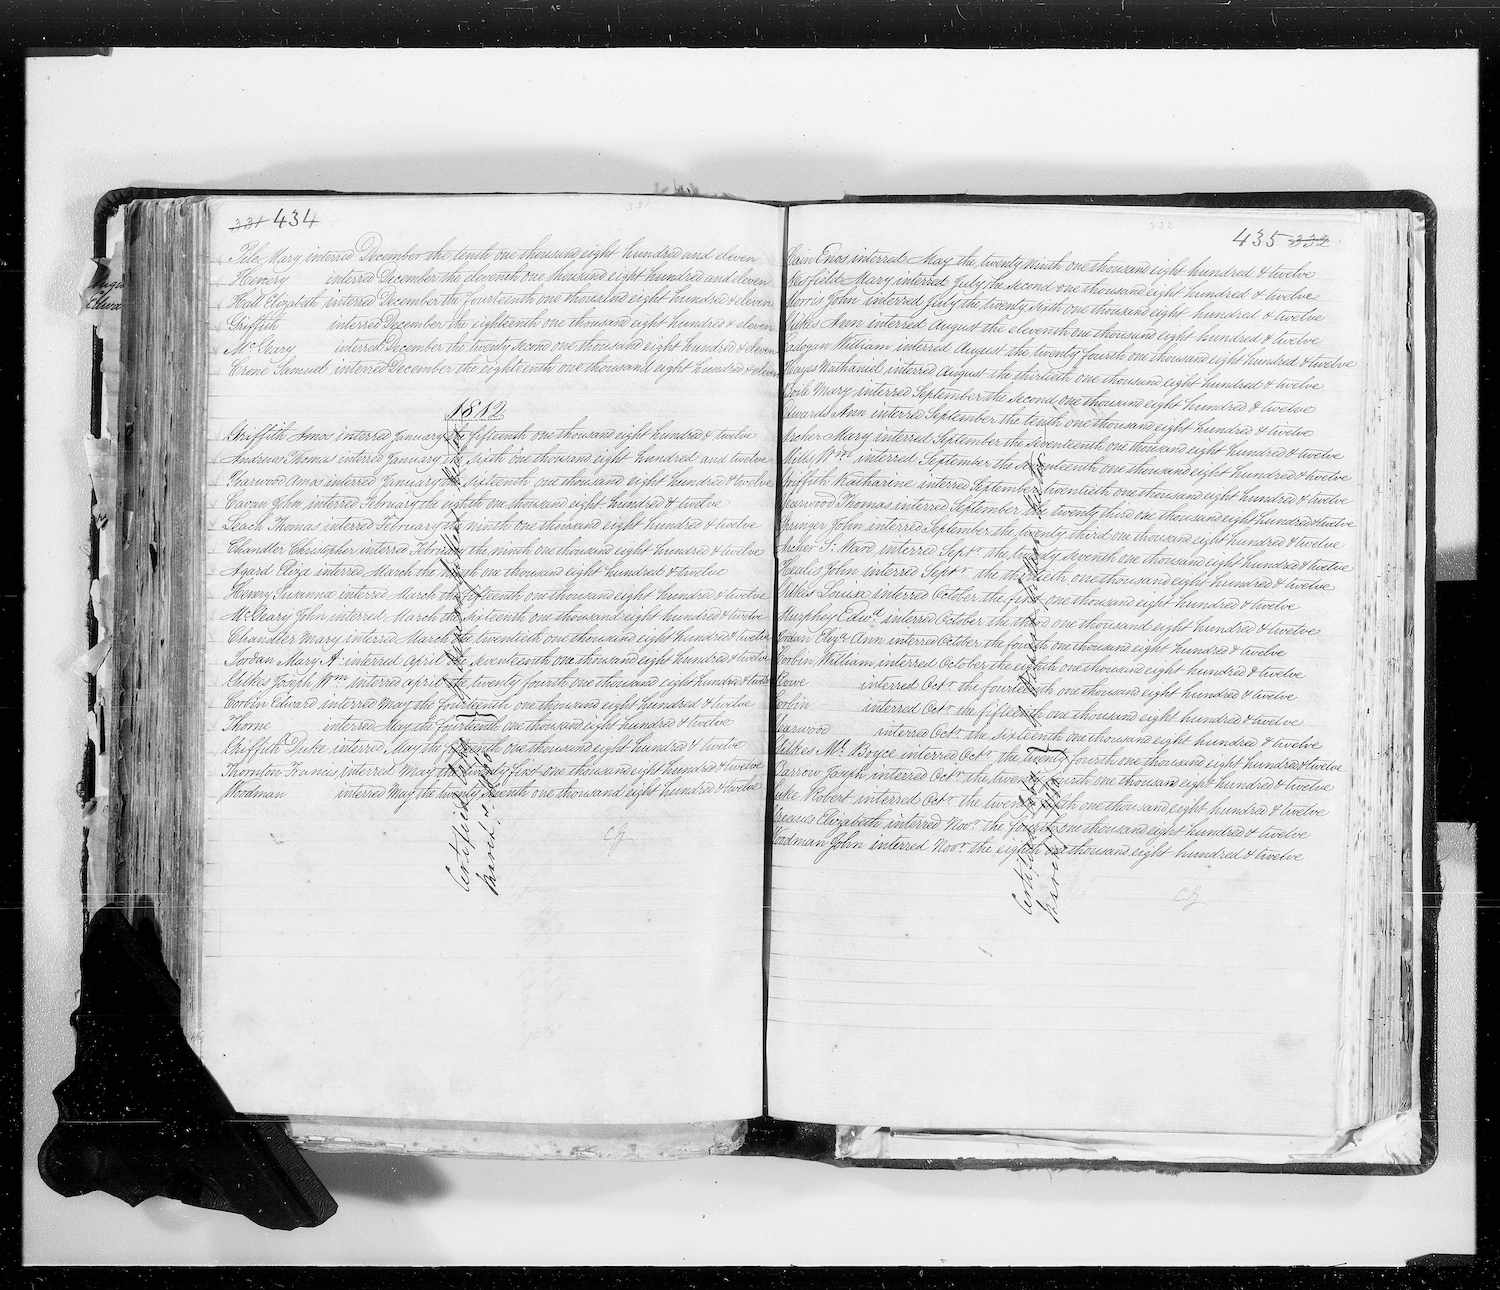 331 434
Pile Mary interred December the tenth one thousand eight hundred and eleven
Henery interred December the eleventh one thousand eight hundred and eleven
Headl Elizabeth interred December the fourteenth one thousand eight hundred & eleven
Griffith interred December the eighteenth one thousand eight hundred & eleven
Mc Cleary interred December the twenty second one thousand eight hundred & eleven
Crone Samuel interred December the eighteenth one thousand eight hundred & eleven
1812
Griffith Amos interred January the fifteenth one thousand eight hundred & twelve
Andrews Thomas interred January the sixth one thousand eight hundred and twelve
Yearwood Amos interred January the sixteenth one thousand eight hundred & twelve
Cavan John interred February the eighth one thousand eight hundred & twelve
Leach Thomas interred February the ninth one thousand eight hundred & twelve
Chandler Christopher interred February the ninth one thousand eight hundred & twelve
Agard Eliza interred March the ninth one thousand eight hundred & twelve
Henry Susanna interred March the fifteenth one thousand eight hundred & twelve
Mc Cleary John interred March the sixteenth one thousand eight hundred & twelve
Chandler Mary interred March the twentieth one thousand eight hundred & twelve
Jordan Mary A: interred April the seventeenth one thousand eight hundred & twelve
Gilkes Joseph Wm interred april the twenty fourth one thousand eight hundred & twelve
Corbin Edward interred May the fourteenth one thousand eight hundred & twelve
Thorne interred May the fourteenth one thousand eight hundred & twelve
Griffith Duke interred May the one thousand eight hundred & twelve
Thornton Francis interred May the twenty first one thousand eight hundred & twelve
Woodman interred May the twenty seventh one thousand eight hundred & twelve
CJ
435 332
Cain Enos interred May the twenty ninth one thousand eight hundred & twelve
Mary interred July the second one thousand eight hundred & twelve
Morris John interred July the twenty sixth one thousand eight hundred & twelve
Gilkes Ann interred august the eleventh one thousand eight hundred & twelve
Cadogan William interred august the twenty fourth one thousand eight hundred & twelve
Mayes Nathaniel interred august the thirtieth one thousand eight hundred & twelve
Mary interred September the second one thousand eight hundred & twelve
Edwards Ann interred September the tenth one thousand eight hundred & twelve
Archer Mary interred September the seventeenth one thousand eight hundred & twelve
Mills Wm interred September the seventeenth one thousand eight hundred & twelve
Griffith Katharine interred September twentieth one thousand eight hundred & twelve
Yearwood Thomas interred September the twenty third one thousand eight hundred & twelve
Springer John interred September the twenty third one thousand eight hundred & twelve
Archer interred Septr the twenty seventh one thousand eight hundred & twelve
John interred Septr the thirtieth one thousand eight hundred & twelve
Gilkes Louisa interred October the first one thousand eight hundred & twelve
Murphey Edwd interred October the third one thousand eight hundred & twelve
Jordan Ann interred October the fourth one thousand eight hundred & twelve
Corbin William interred October the eighth one thousand eight hundred & twelve
interred Octr the fourteenth one thousand eight hundred & twelve
Corbin interred Octr the fifteenth one thousand eight hundred & twelve
Yearwood interred Octr the sixteenth one thousand eight hundred & twelve
Gilkes Boyce interred Octr the twenty fourth one thousand eight hundred & twelve
Joseph interred Octr the twenty one thousand eight hundred & twelve
Robert interred Octr the twenty one thousand eight hundred & twelve
Elizabeth interred Novr the fourth one thousand eight hundred & twelve
Woodman John interred Novr the eighth one thousand eight hundred & twelve
CJ